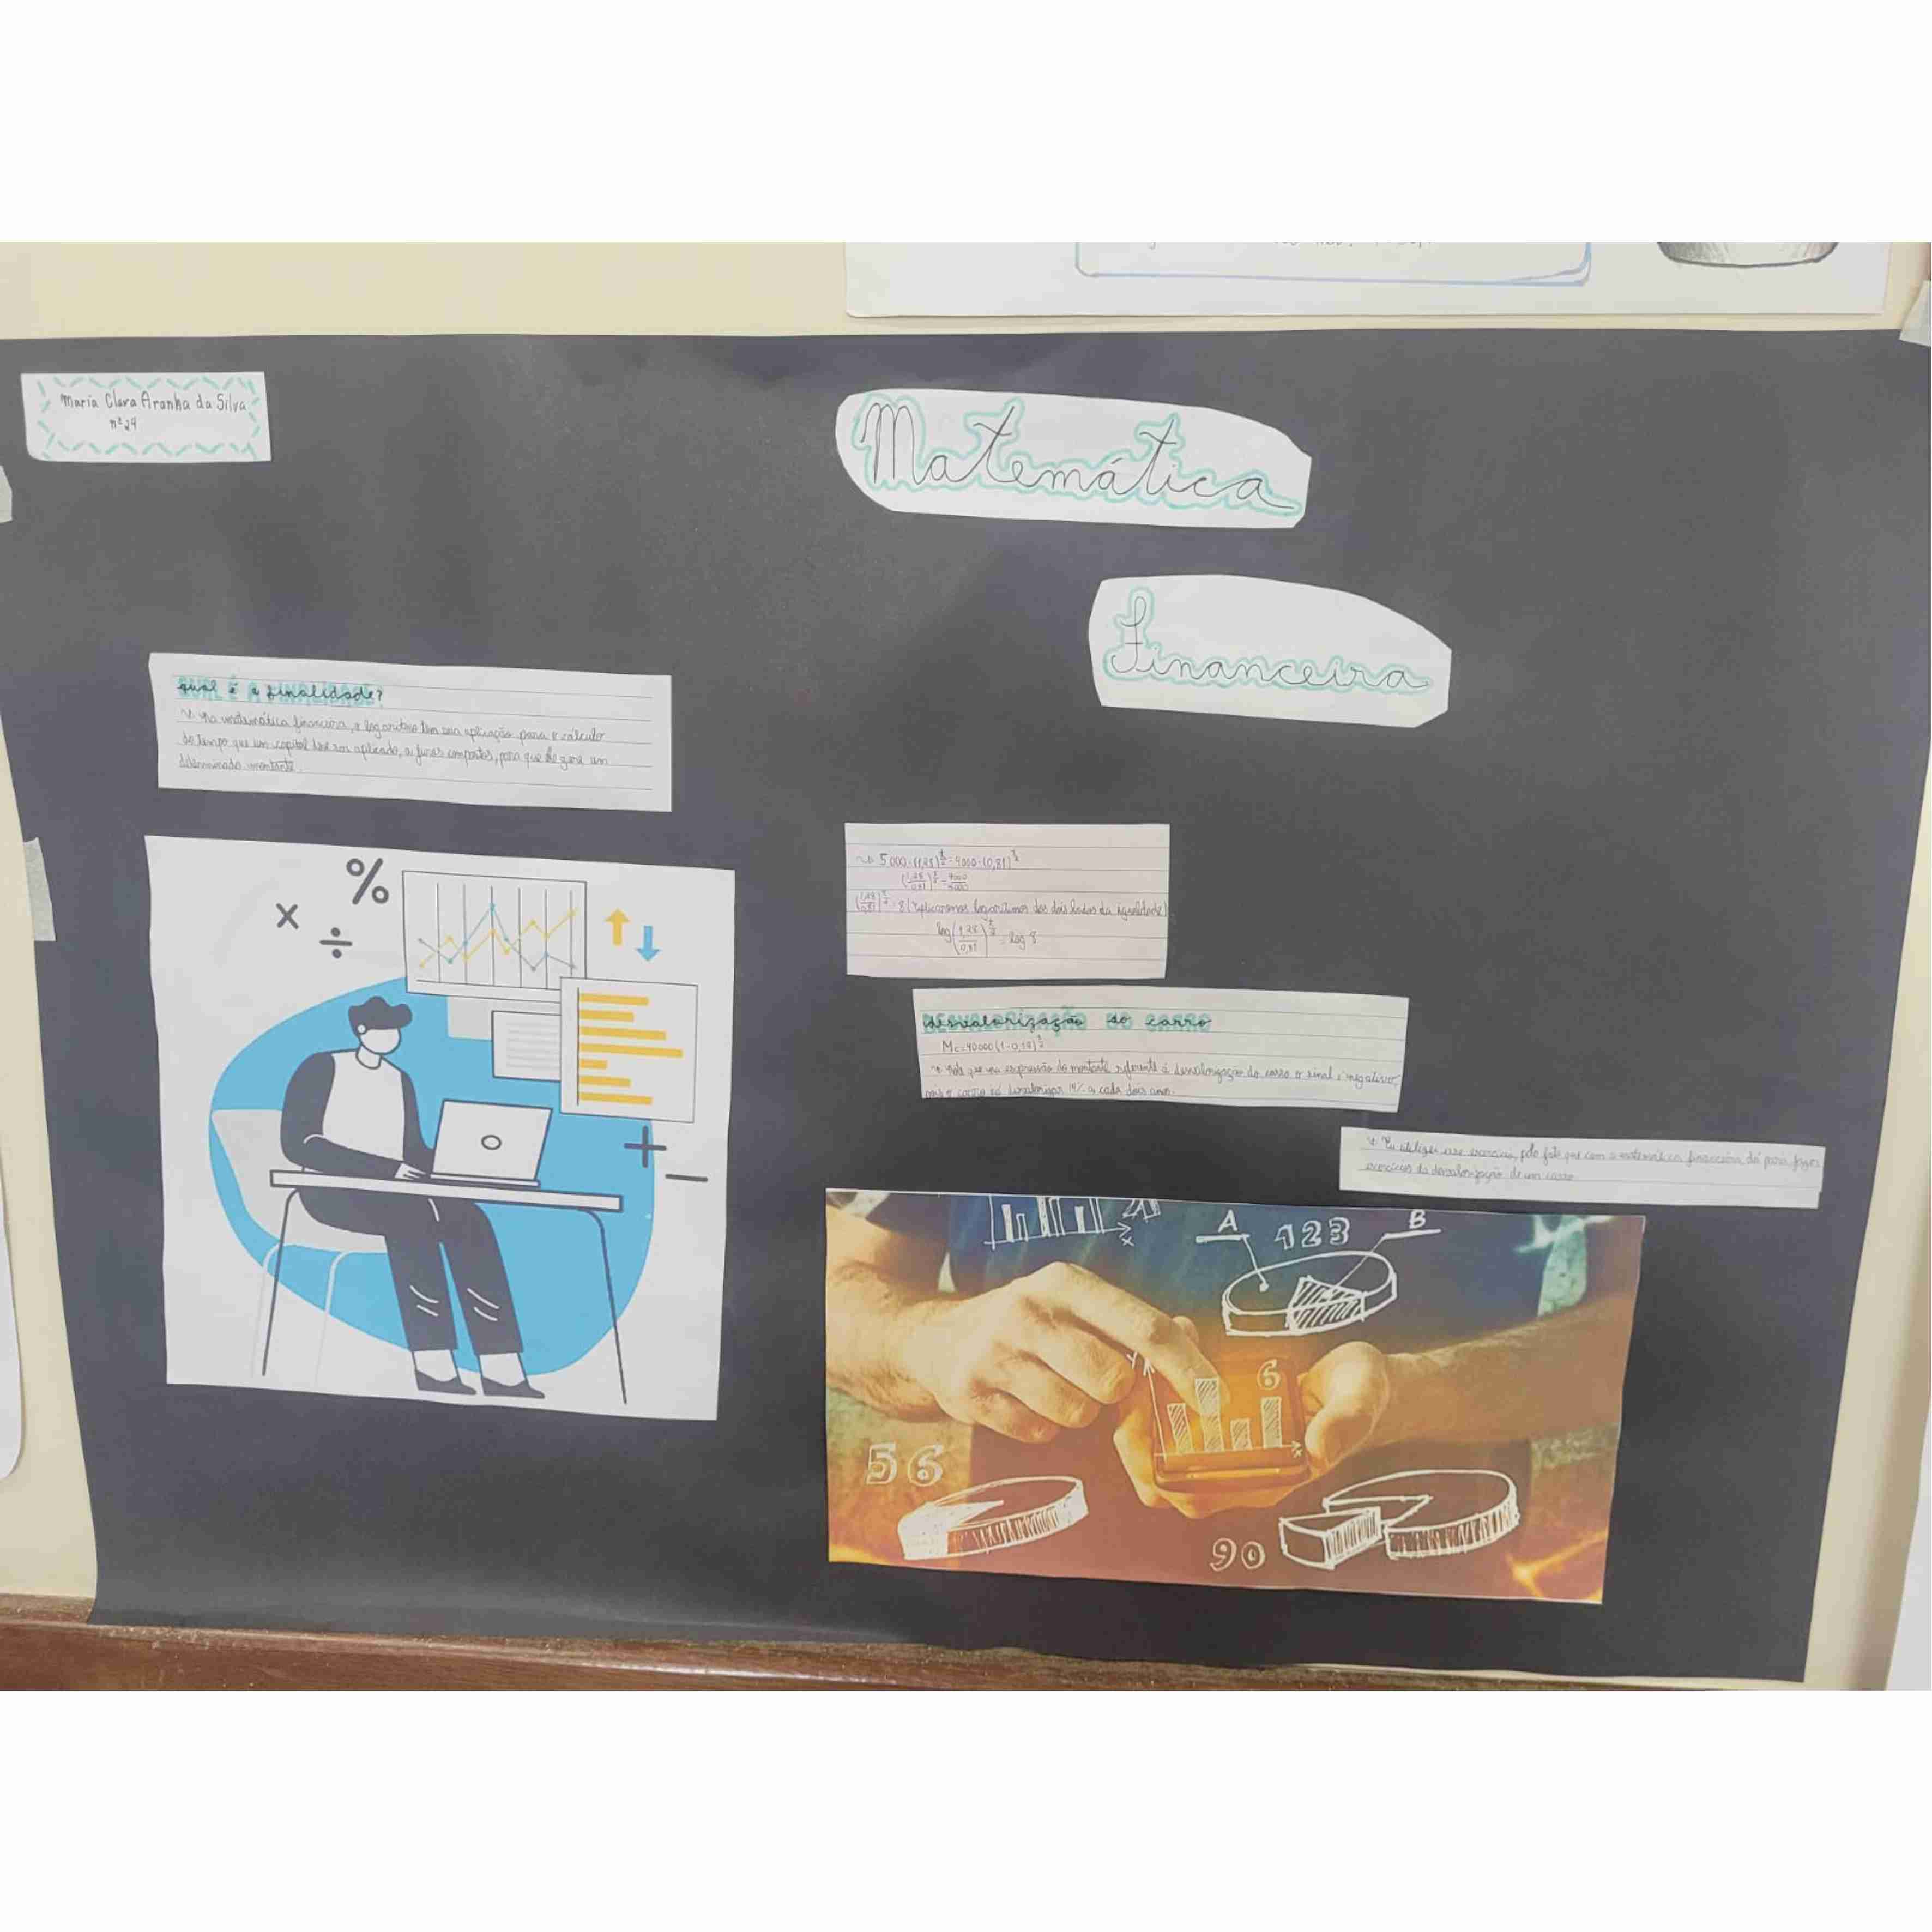 Maria Clara Aranha da Silva
nº 24
Matemática
Financeira
qual é a finalidade?
↝ Na matemática financeira, o logaritmo tem sua aplicação para o cálculo
do tempo que um capital deve ser aplicado, a juros compostos, para que ele gere um
determinado montante.
%
x
÷
+
−
5000·(1,28)^{t/2} = 4000·(0,81)^{t/2}
(1,28/0,81)^{t/2} = 4000/5000
(1,28/0,81)^{t/2} = 8 (Aplicaremos logaritmos dos dois lados da igualdade)
log(1,28/0,81)^{t/2} = log 8
desvalorização do carro
↝ Note que na expressão do montante referente à desvalorização do carro o sinal é negativo,
pois o carro irá desvalorizar 19% a cada dois anos.
↝ Eu esse exercício, pelo fato que com a matemática financeira dá para fazer
exercícios da desvalorização de um carro
x
A
123
B
Y
6
x
56
90